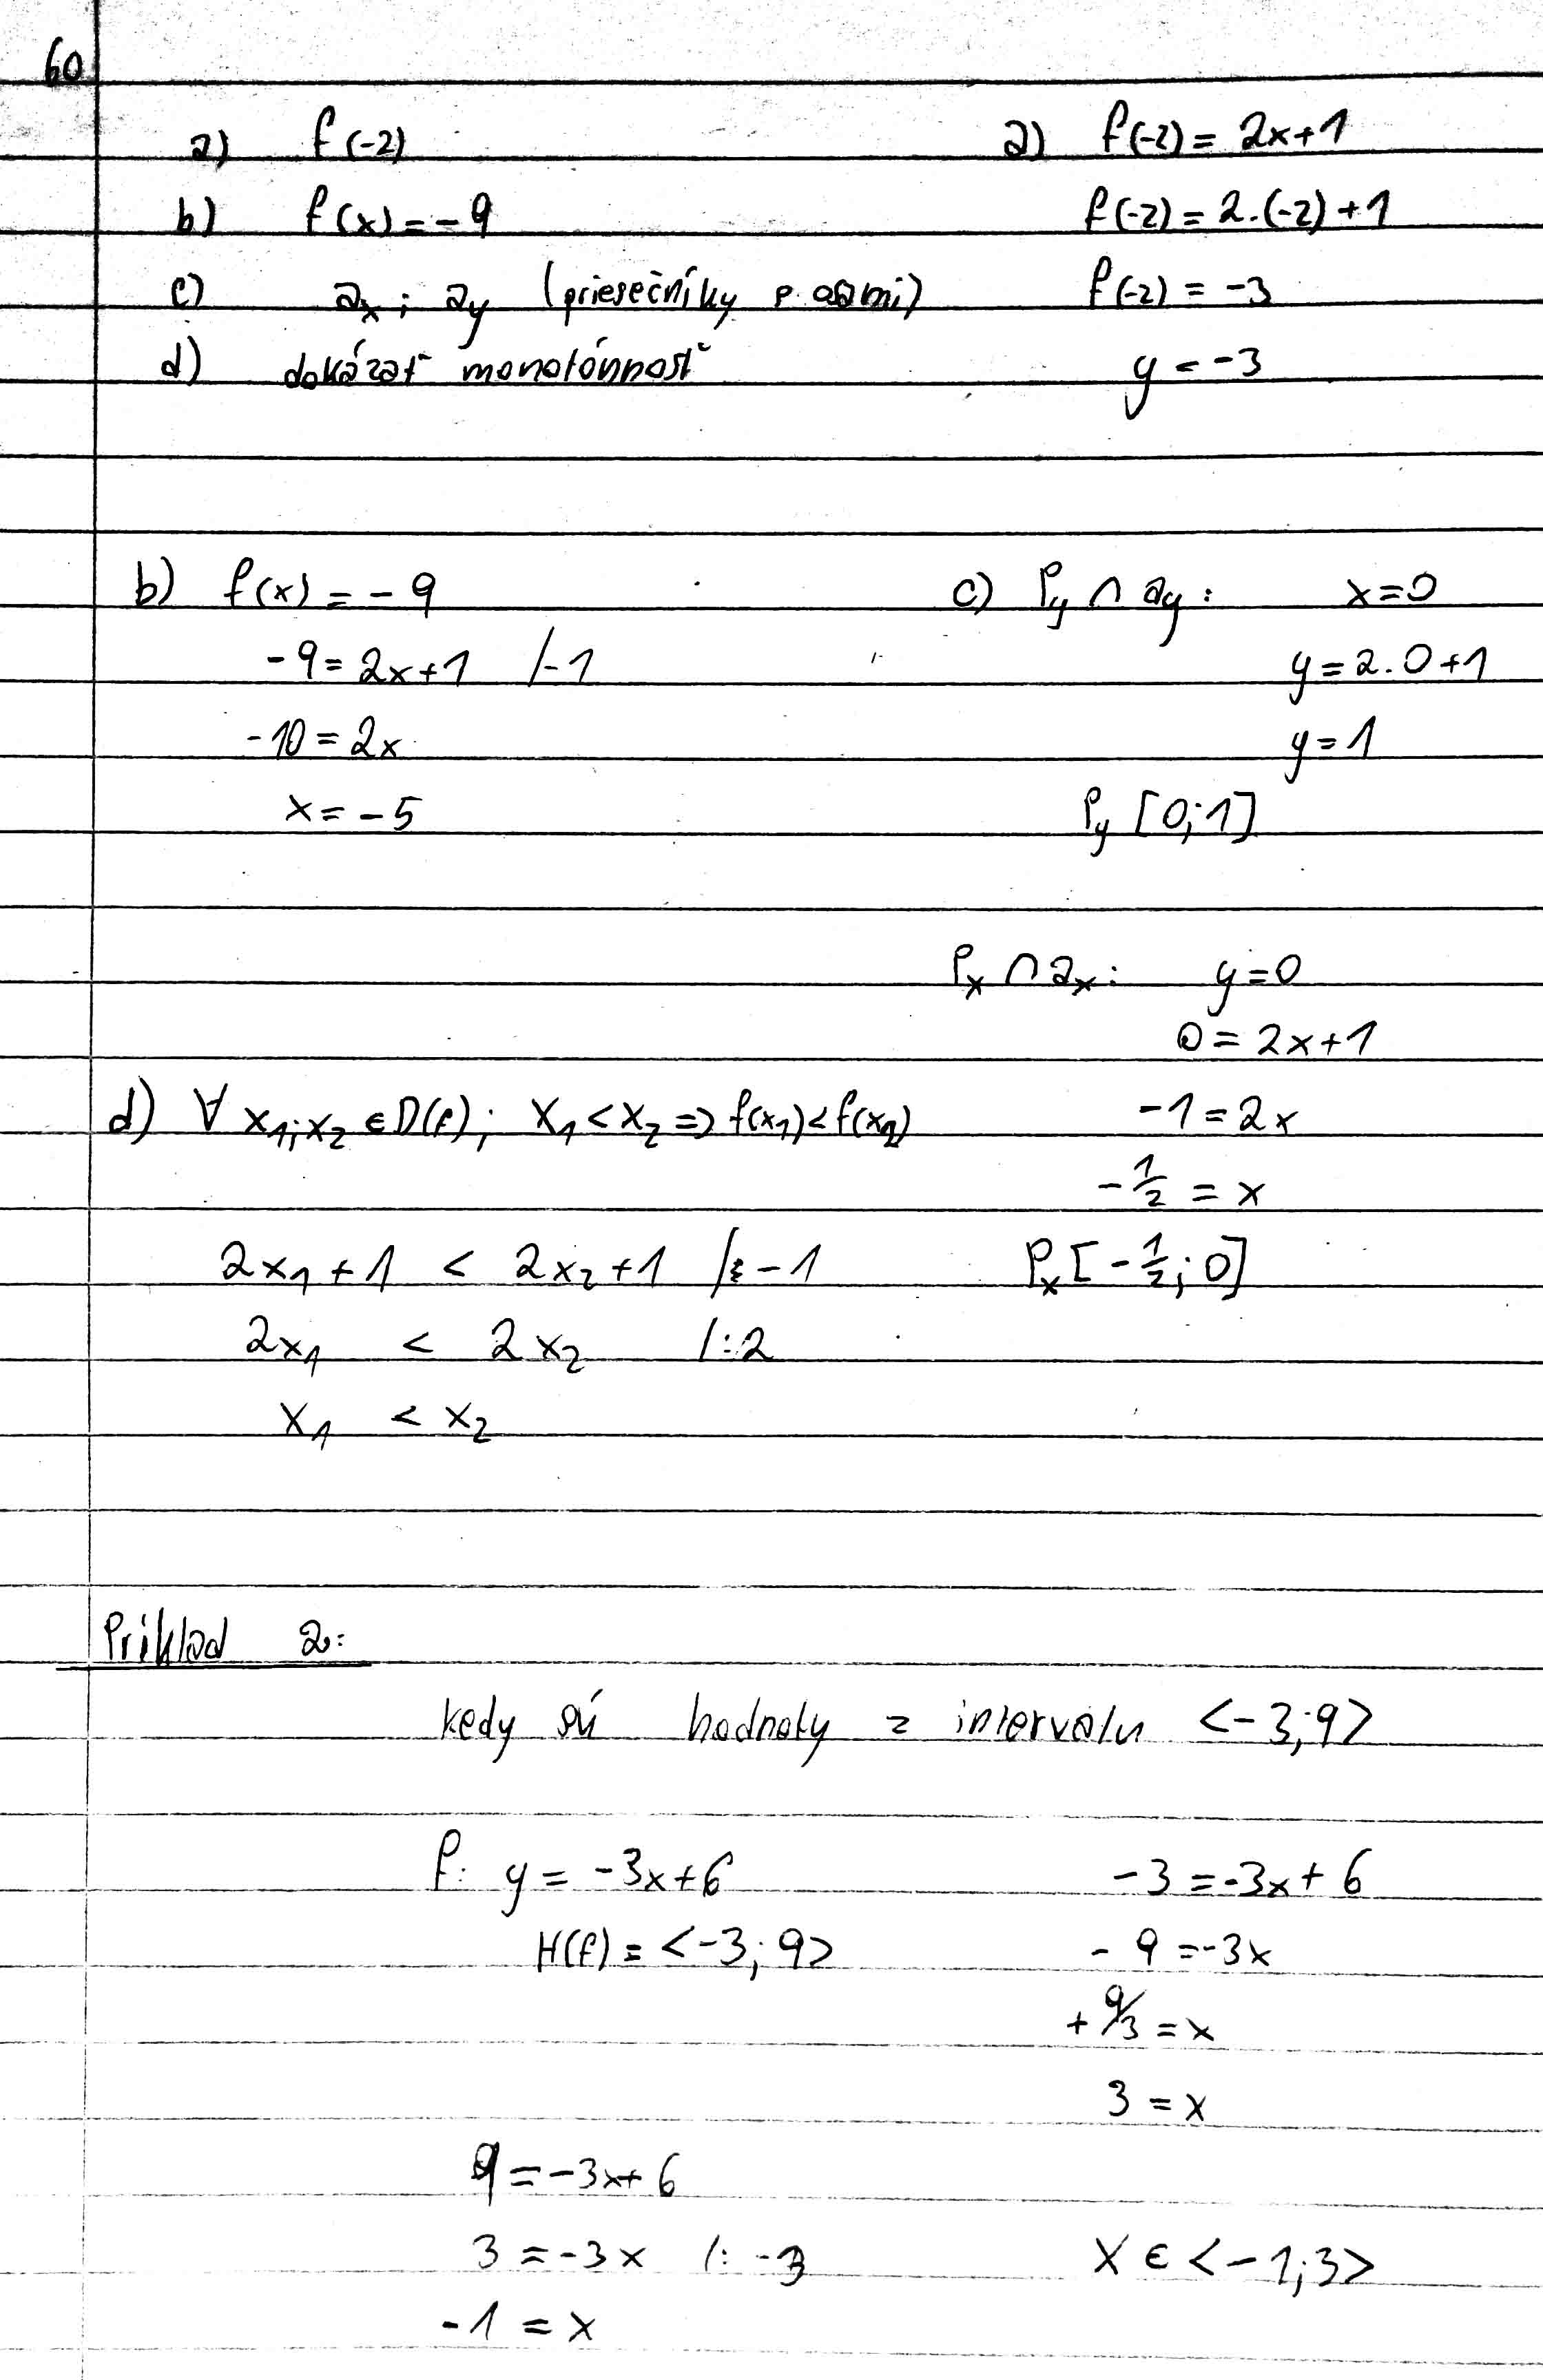 60
a) f(-2)
b) f(x) = -9
c) ax ; ay (priesečníky s osami)
d) dokázať monotónnosť
a) f(-2) = 2x+1
f(-2) = 2.(-2)+1
f(-2) = -3
y = -3
b) f(x) = -9
-9 = 2x+1 /-1
-10 = 2x
x = -5
c) Py ∩ ay : x=0
y = 2.0+1
y = 1
Py [0;1]
Px ∩ ax : y=0
0 = 2x+1
-1 = 2x
-1/2 = x
Px [-1/2; 0]
d) ∀ x1;x2 ∈ D(f); x1 < x2 => f(x1) < f(x2)
2x1 + 1 < 2x2 + 1 /-1
2x1 < 2x2 /:2
x1 < x2
Príklad 2:
kedy sú hodnoty z intervalu <-3;9>
f: y = -3x+6
H(f) = <-3;9>
-3 = -3x+6
-9 = -3x
+9/3 = x
3 = x
9 = -3x+6
3 = -3x /: -3
-1 = x
x ∈ <-1;3>